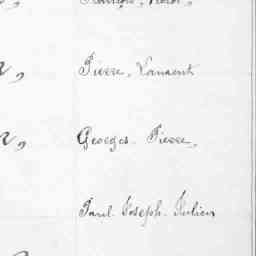 Pierre, Laurent
Georges Pierre,
Paul Joseph Julien